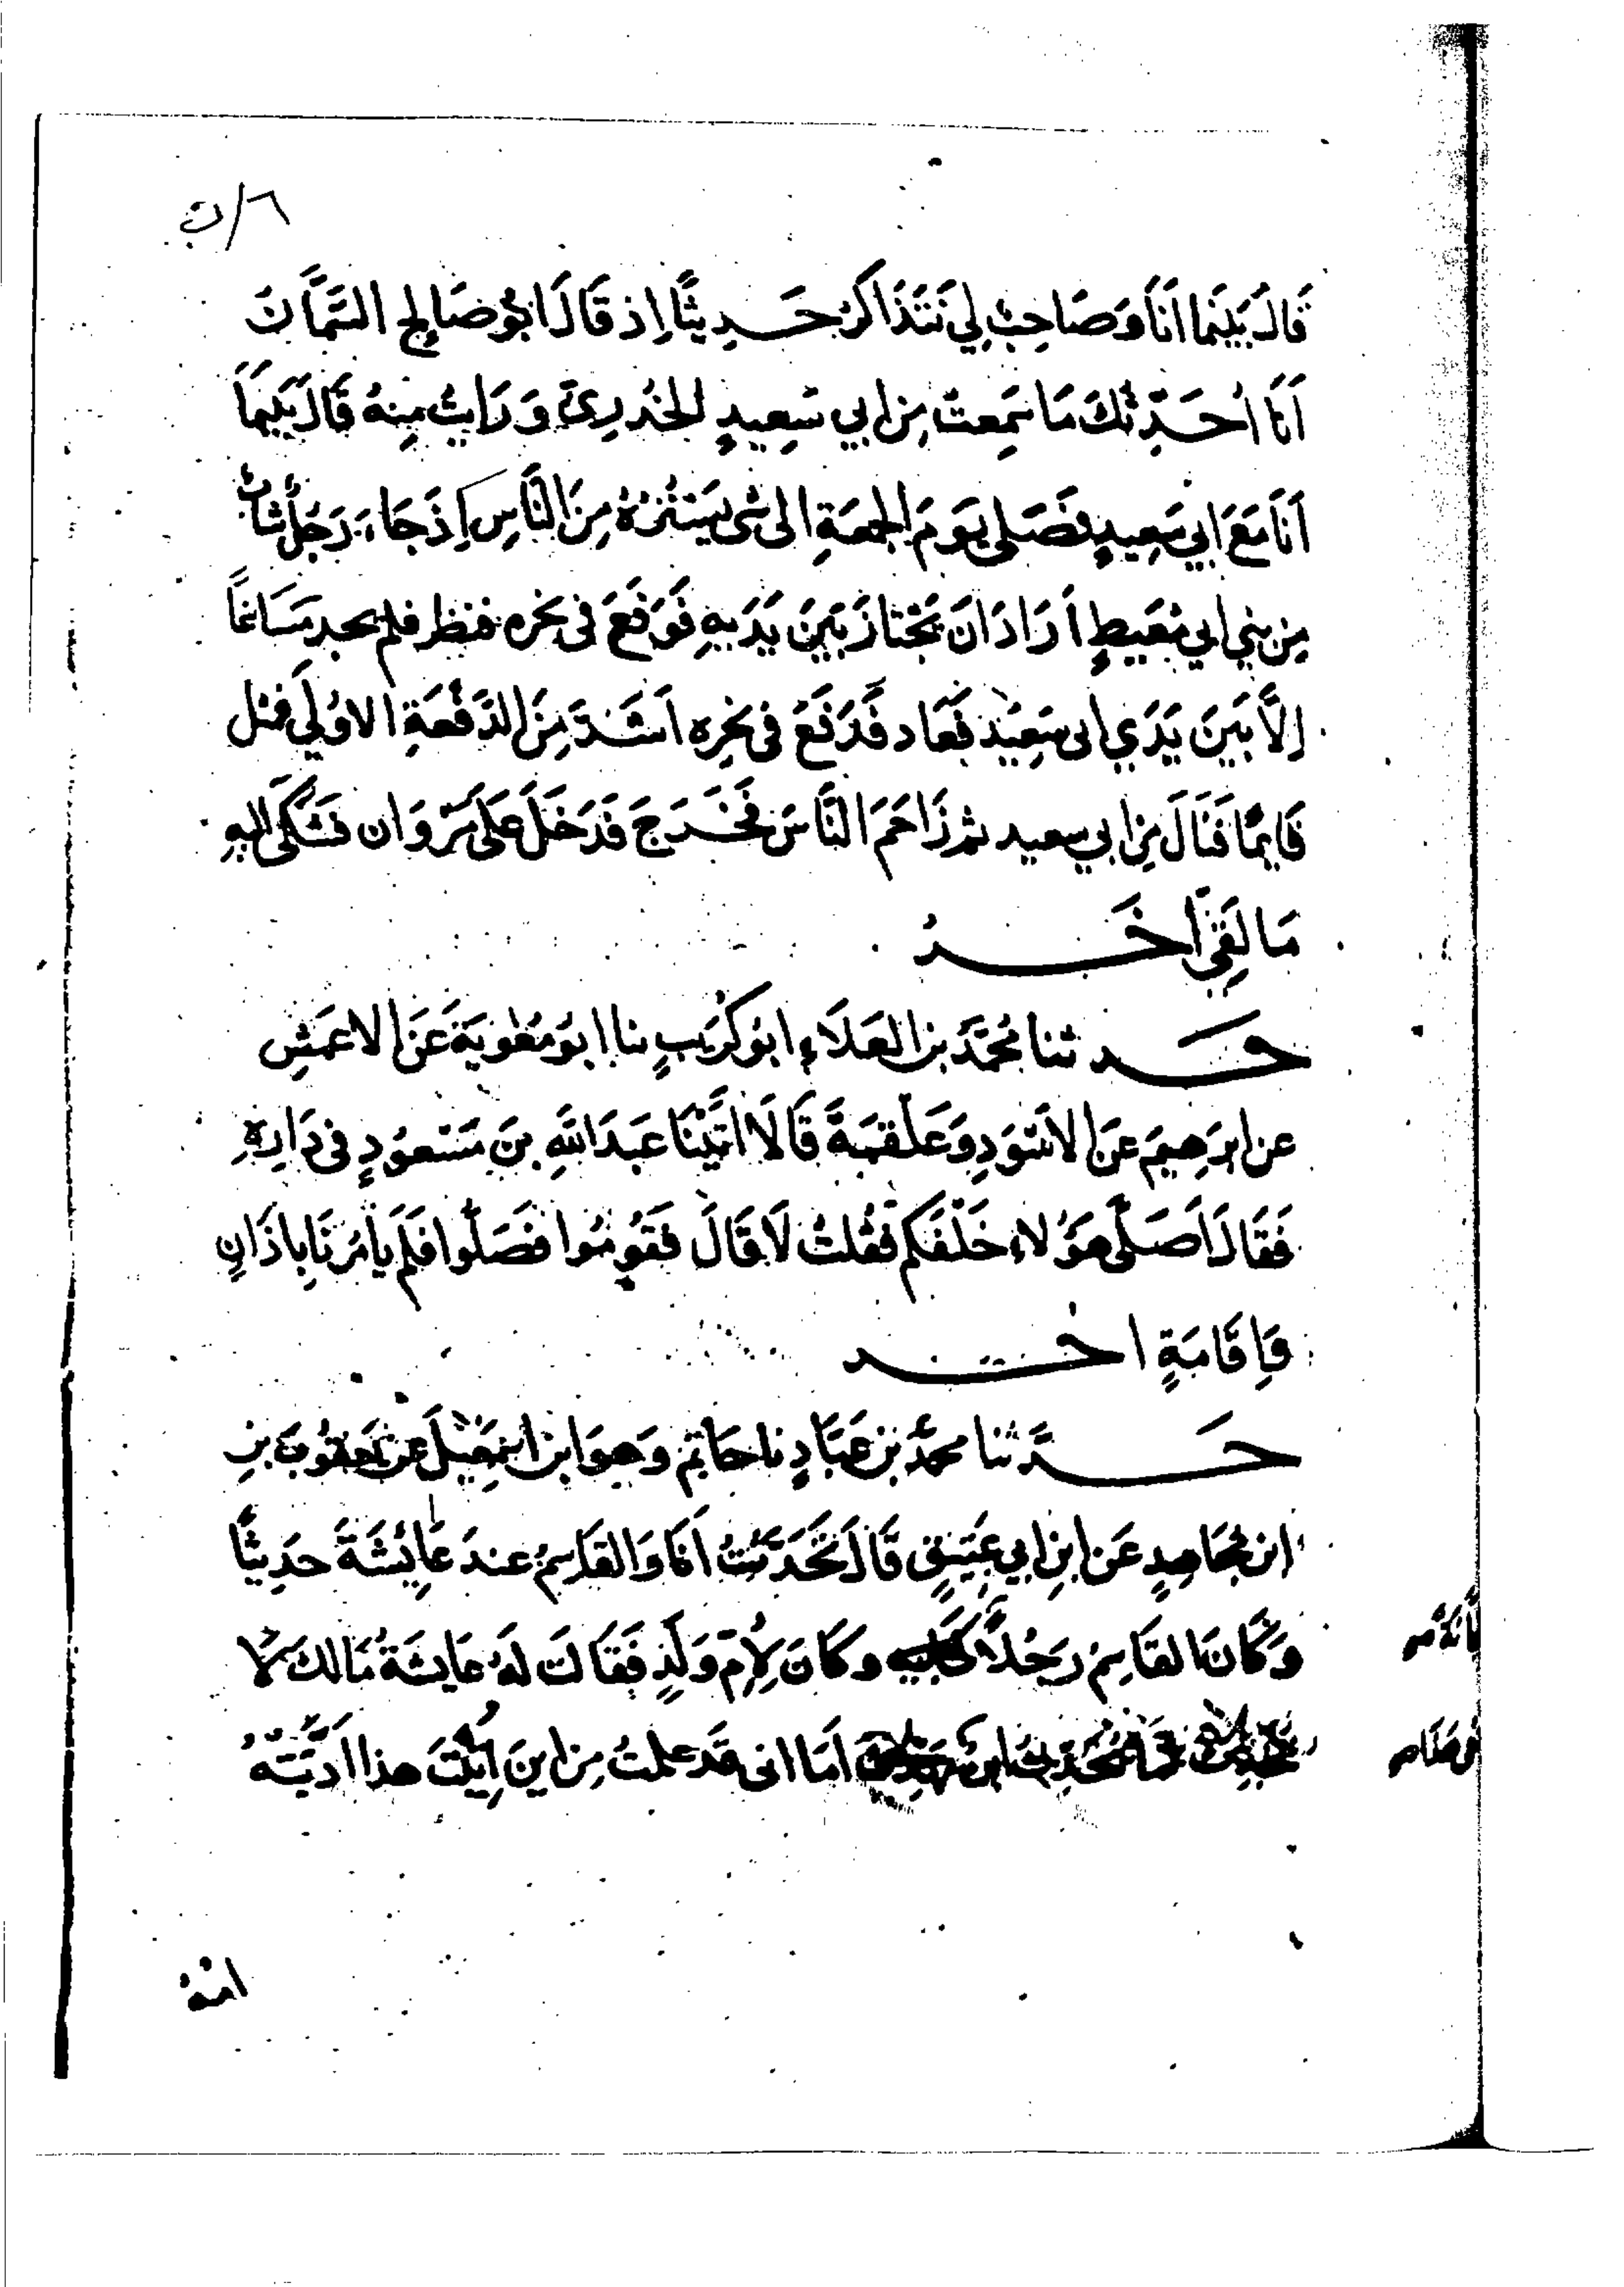 ٦/ب
قَالَ بَيْنَمَا اَنَا وَصَاحِبٌ لِي نَتَذَاكَرُ حَدِيثًا اِذ قَالَ ابُو صَالِحٍ السَّمَّانَ
اَنَا اُحَدِّثُكَ مَا سَمِعتُ مِن ابي سَعِيدٍ الخُدرِيّ وَرَايتُ مِنهُ قَالَ بَيْنَمَا
اَنَا مَعَ ابي سَعِيدٍ نُصَلي يَومَ الجمعَةِ الى شى يَستُرُهُ مِنَ النَّاسِ اِذ جَاءَ رَجُلٌ شَابٌ
مِن بني ابي مُعَيطٍ اَرَادَ اَن يَجْتَازَ بَيْنَ يَدَيهِ فَوَقَعَ في نحره فنظر فلم يجد مَسَاغًا
اِلَّا بَينَ يَدَي ابى سَعِيدٍ فَعَاد فَدَفَعَ في نحرِه اَشَدَّ مِنَ الدَفْعَةِ الاوُلَي فمثل
قَايمًا فَنَالَ مِن ابي سعيد ثم زَاحَمَ النَّاسَ فَخَرَجَ فَدَخَلَ عَلَى مَرْوَان فشَكَى اليهِ
مَا لَقِيَ اَخَــدُ
حَــدثنا مُحَمَّدُ بن العَلَاءِ ابُو كُرَيبٍ نا ابُو مُعٰويَةَ عَنَ الاعمَشِ
عن ابرَهِيمَ عَنَ الاَسْوَدِ وَعَلْقمَةَ قَالَا اتَيْنَا عَبدَ اللهِ بنَ مَسْعوُدٍ في دَارِهِ
فَقَالَ اَصَلَّى هَوُلاءِ خَلْفَكم فَقُلتُ لَا قَالَ فَقوُموُا فَصَلّوا فَلَم يَامُرنَا بِاذَانٍ
وَاِقَامَةٍ اخــد
حَــدَّثنا محمَّدُ بن عَبّادٍ نا حَاتم وَهوَ ابن اسمَعِيلَ عن يَعقوُبَ بنِ
ابن مُجَاهِدٍ عَن ابنِ ابي عَتِيقٍ قَالَ تَحَدَّثْتُ اَنَا وَالقَاسِمُ عندَ عَايِشَةَ حدِيثًا
وَكَانَ القَاسِمُ رَجُلًا وكَانَ لِاُمّ وَلَدٍ فَقَالَت لَهُ عَايشَةُ مَا لكَ لا
اَمَا انى قَد علمتُ مِن اينَ اُتِيْتَ هذا اَدَّبَتْهُ
امُّهُ